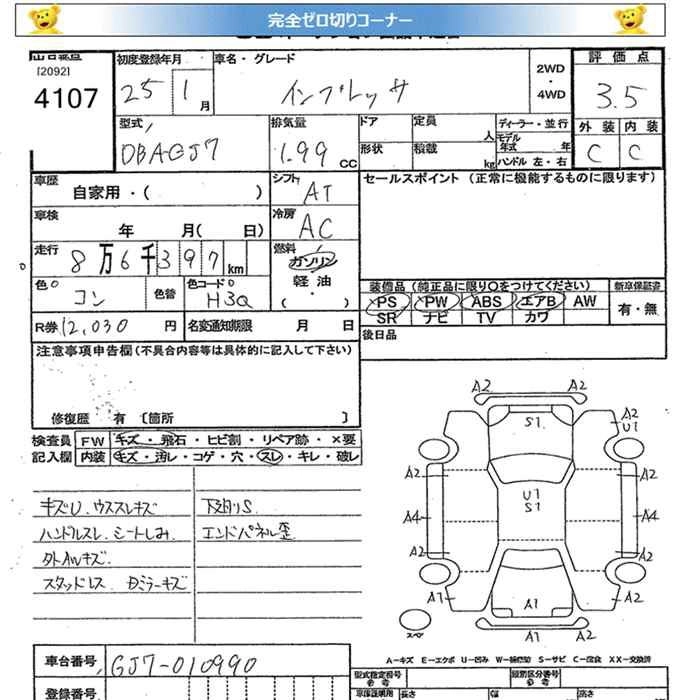 完全ゼロ切りコーナー
出品番号 初度登録年月 車名・グレード 評価点
[2092] 2WD・4WD
4107 25 1月 インプレッサ 3.5
型式 排気量 ドア 定員 人 ディーラー・並行 外装 内装
DBAGJ7 1.99 CC 形状 積載 kg モデル年式 年 ハンドル 左・右 C C
車歴 自家用・( ) シフト AT セールスポイント (正常に機能するものに限ります)
車検 年 月( 日) 冷房 AC
走行 8万6千397km 燃料 ガソリン
色 コン 色替 色コード H3Q 軽油 ( ・ )
装備品 (純正品に限り〇をつけてください) 新車保証書
PS PW ABS エアB AW 有・無
R券 12,030 円 名変通知期限 月 日 SR ナビ TV カワ
後日品
注意事項申告欄(不具合内容等は具体的に記入して下さい)
修復歴 有 〔箇所 〕
検査員 FW キズ・飛石・ヒビ割・リペア跡・×要
記入欄 内装 キズ・汚レ・コゲ・穴・スレ・キレ・破レ
キズU.ウススレキズ 下廻りS
ハンドルスレ.シートしみ エンドパネル歪
外AWキズ
スタッドレス Dミラーキズ
A2 A2
S1 A2
U1
A2 A2
U1
S1
A4 A4
A2 A2
A1 A1 A2
スペア A1
A−キズ E−エクボ U−凹み W−補修跡 S−サビ C−腐食 XX−交換済
車台番号 GJ7-010990 型式指定番号 類別区分番号
登録番号 長さ 幅 高さ